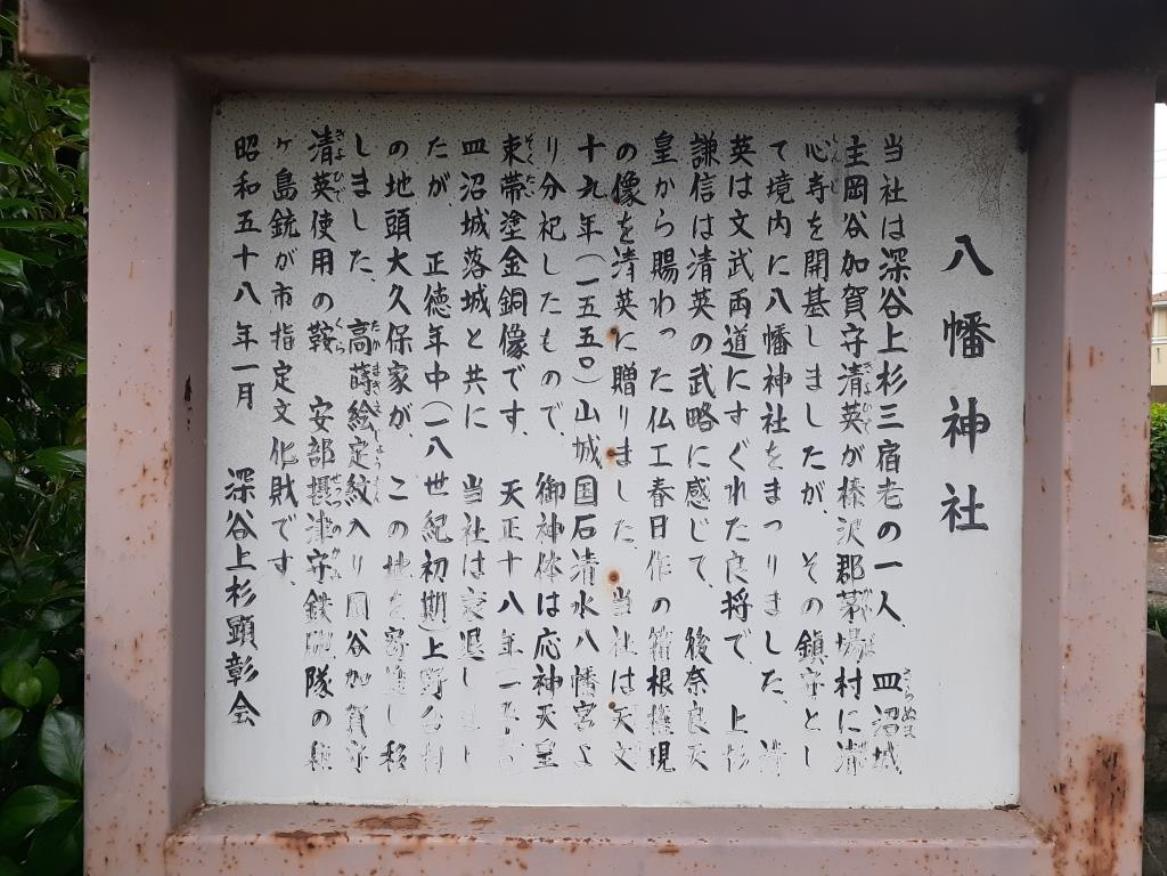 八幡神社
当社は深谷上杉三宿老の一人、皿沼城
主岡谷加賀守清英が榛沢郡茅場村に清
心寺を開基しましたが、その鎮守とし
て境内に八幡神社をまつりました。清
英は文武両道にすぐれた良将で、上杉
謙信は清英の武略に感じて、後奈良天
皇から賜わった仏工春日作の箱根権現
の像を清英に贈りました。当社は天文
十九年(一五五〇)山城国石清水八幡宮よ
り分祀したもので、御神体は応神天皇
束帯塗金銅像です。天正十八年(一五
皿沼城落城と共に当社は衰退しまし
たが、正徳年中(一八世紀初期)上野台村
の地頭大久保家が、この地を し移
しました。高蒔絵定紋入り岡谷加賀守
清英使用の鞍、安部摂津守鉄砲隊の種
ヶ島銃が市指定文化財です。
昭和五十八年一月 深谷上杉顕彰会